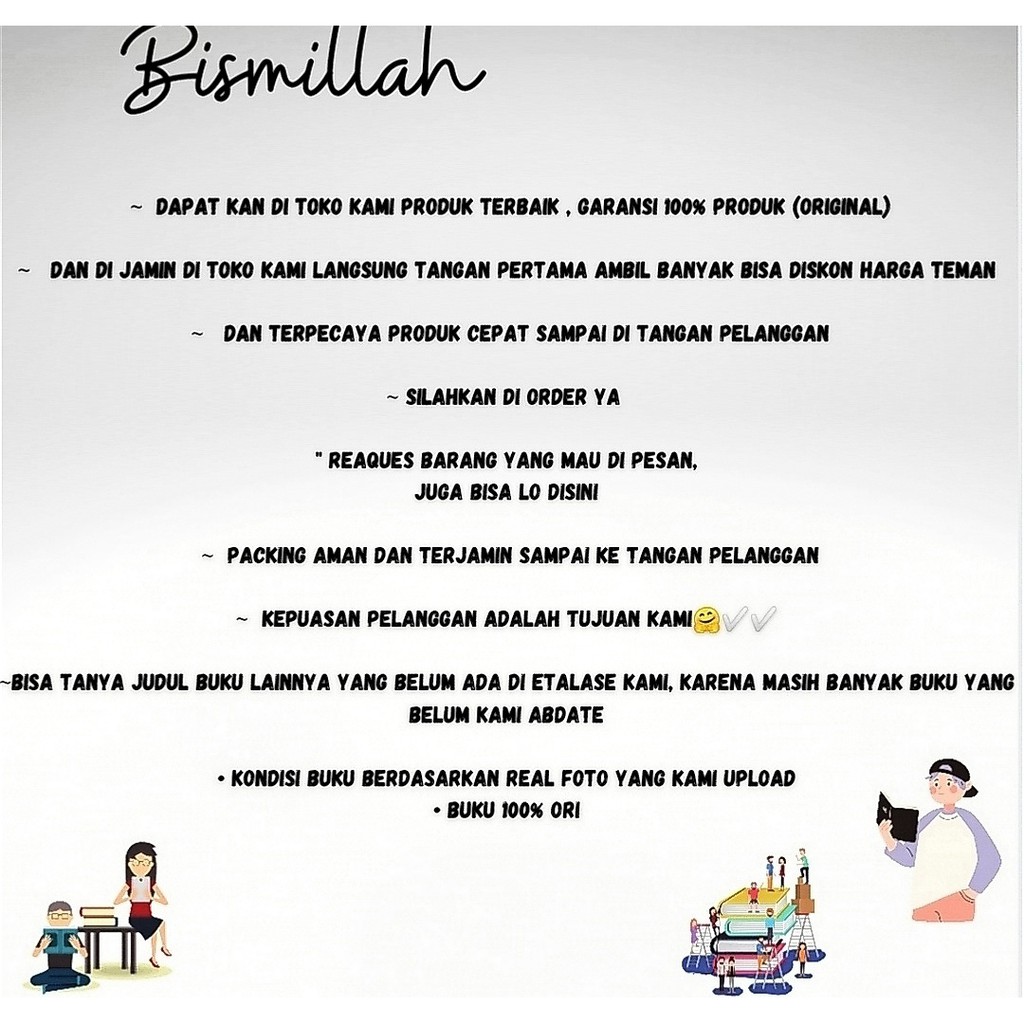 Bismillah
~ DAPAT KAN DI TOKO KAMI PRODUK TERBAIK , GARANSI 100% PRODUK (ORIGINAL)
~ DAN DI JAMIN DI TOKO KAMI LANGSUNG TANGAN PERTAMA AMBIL BANYAK BISA DISKON HARGA TEMAN
~ DAN TERPECAYA PRODUK CEPAT SAMPAI DI TANGAN PELANGGAN
~ SILAHKAN DI ORDER YA
" REAQUES BARANG YANG MAU DI PESAN,
JUGA BISA LO DISINI
~ PACKING AMAN DAN TERJAMIN SAMPAI KE TANGAN PELANGGAN
~ KEPUASAN PELANGGAN ADALAH TUJUAN KAMI🤗✓✓
~BISA TANYA JUDUL BUKU LAINNYA YANG BELUM ADA DI ETALASE KAMI, KARENA MASIH BANYAK BUKU YANG
BELUM KAMI ABDATE
• KONDISI BUKU BERDASARKAN REAL FOTO YANG KAMI UPLOAD
• BUKU 100% ORI